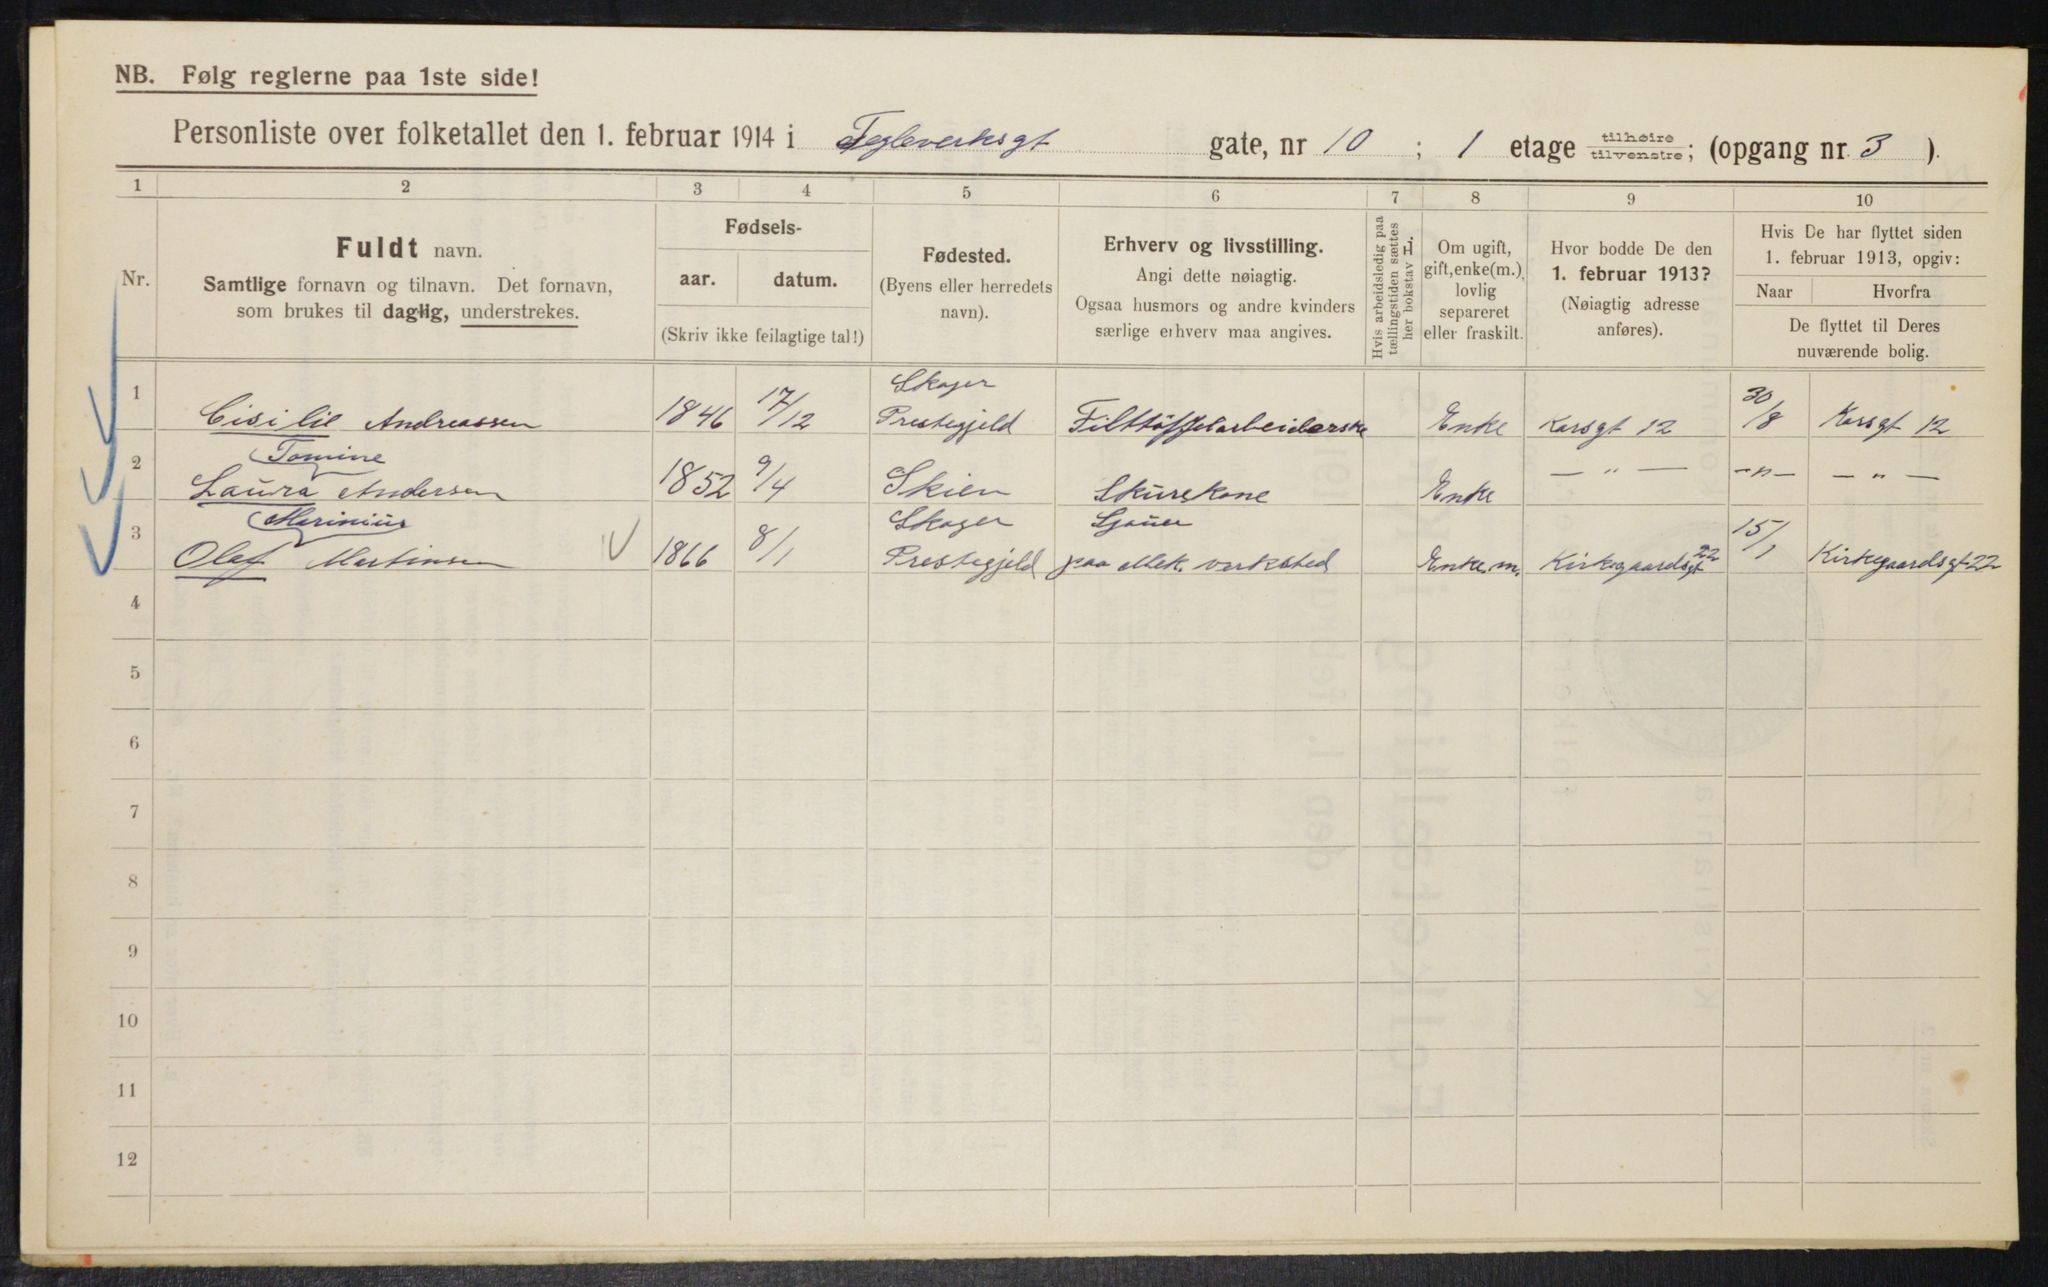 NB. Følg reglerne paa 1ste side!
Personliste over folketallet den 1. februar 1914 i Tegleverksgt gate, nr 10 ; 1 etage tilhøire tilvenstre; (opgang nr. 3 ).
1 2 3 4 5 6 7 8 9 10
Nr.
Fuldt navn.
Samtlige fornavn og tilnavn. Det fornavn,
som brukes til daglig, understrekes.
Fødsels-
aar. datum.
(Skriv ikke feilagtige tal!)
Fødested.
(Byens eller herredets
navn).
Erhverv og livsstilling.
Angi dette nøiagtig.
Ogsaa husmors og andre kvinders
særlige erhverv maa angives.
Hvis arbeidsledig paa
tællingstiden sættes
her bokstav L.
Om ugift,
gift, enke(m.),
lovlig
separeret
eller fraskilt.
Hvor bodde De den
1. februar 1913?
(Nøiagtig adresse
anføres).
Hvis De har flyttet siden
1. februar 1913, opgiv:
Naar Hvorfra
De flyttet til Deres
nuværende bolig.
1 Cisilie Andreassen 1846 17/12 Skoger Prestegjeld Filttøffelarbeiderske Enke Korsgt 12 30/8 Korsgt 12
2 Tomine
Laura Andersen 1852 9/4 Skien Skurekone Enke — " — — " — — " —
3 Marinius
Olaf Martinsen 1866 8/1 Skoger Prestegjeld Sjauer paa Mek. verksted Enke m. Kirkegaardsgt 22 15/1 Kirkegaardsgt 22
4
5
6
7
8
9
10
11
12